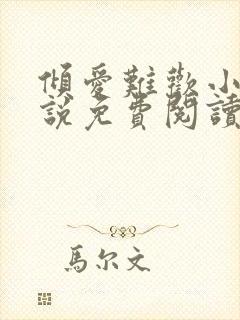 傾愛難歡小
說免費閱讀
馬尔文